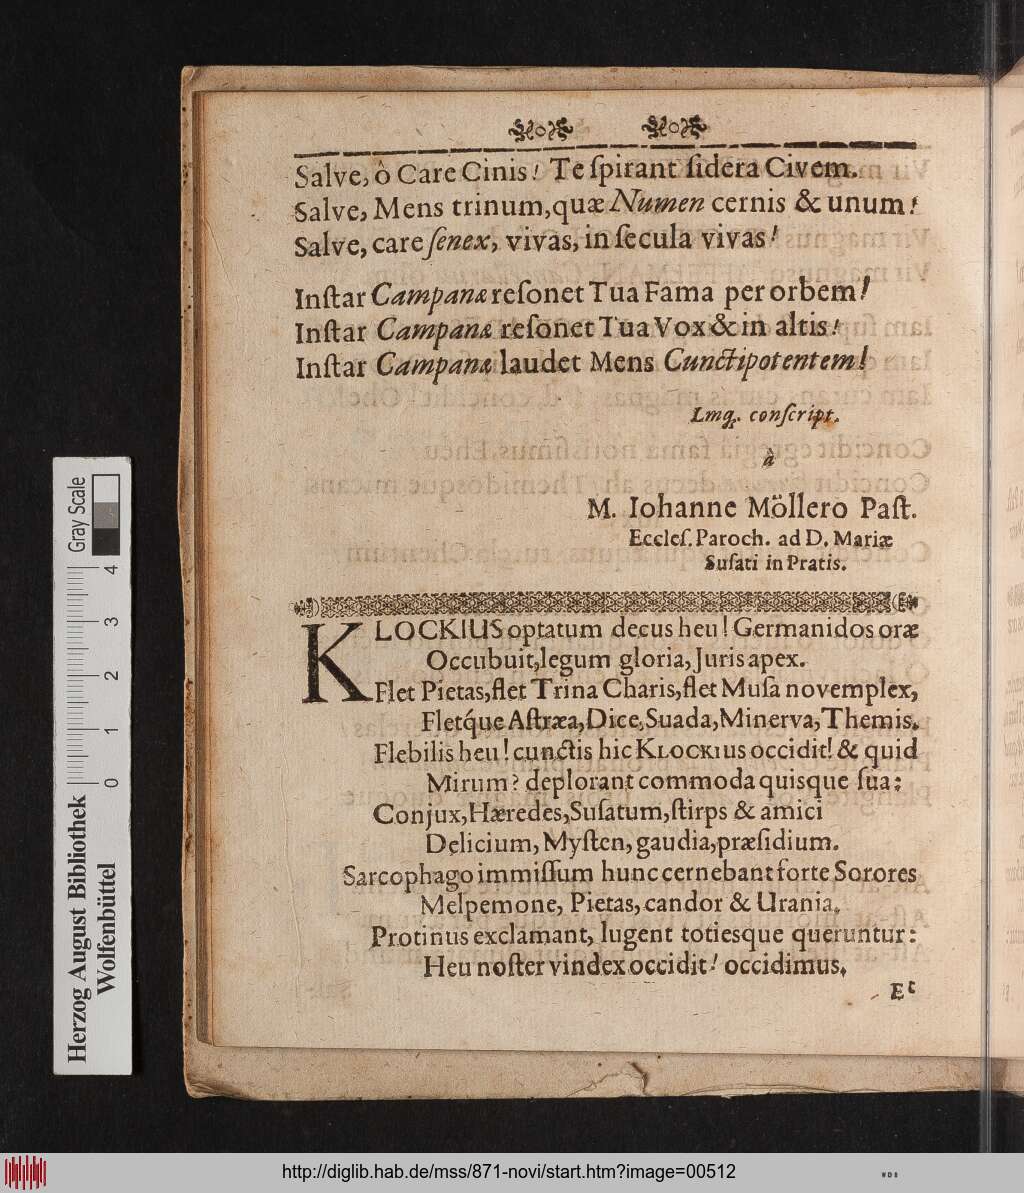 Salve, ô Care Cinis! Te ſpirant ſidera Civem.
Salve, Mens trinum, quæ Numen cernis & unum!
Salve, care ſenex, vivas, in ſecula vivas!
Inſtar Campanæ reſonet Tua Fama per orbem!
Inſtar Campanæ reſonet Tua Vox & in altis!
Inſtar Campanæ laudet Mens Cunctipotentem!
Lmq. conſcript.
à
M. Iohanne Möllero Paſt.
Eccleſ. Paroch. ad D. Mariæ
Suſati in Pratis.
KLOCKIUS optatum decus heu! Germanidos oræ
Occubuit, legum gloria, Juris apex.
Flet Pietas, flet Trina Charis, flet Muſa novemplex,
Fletq́ue Aſtræa, Dice, Suada, Minerva, Themis.
Flebilis heu! cunctis hic KLOCKIUS occidit! & quid
Mirum? deplorant commoda quisque ſua:
Conjux, Hæredes, Suſatum, ſtirps & amici
Delicium, Myſten, gaudia, præſidium.
Sarcophago immiſſum hunc cernebant forte Sorores
Melpomone, Pietas, candor & Urania.
Protinus exclamant, lugent totiesque queruntur:
Heu noſter vindex occidit! occidimus.
Et
Gray Scale
0 1 2 3 4
Herzog August Bibliothek
Wolfenbüttel
http://diglib.hab.de/mss/871-novi/start.htm?image=00512